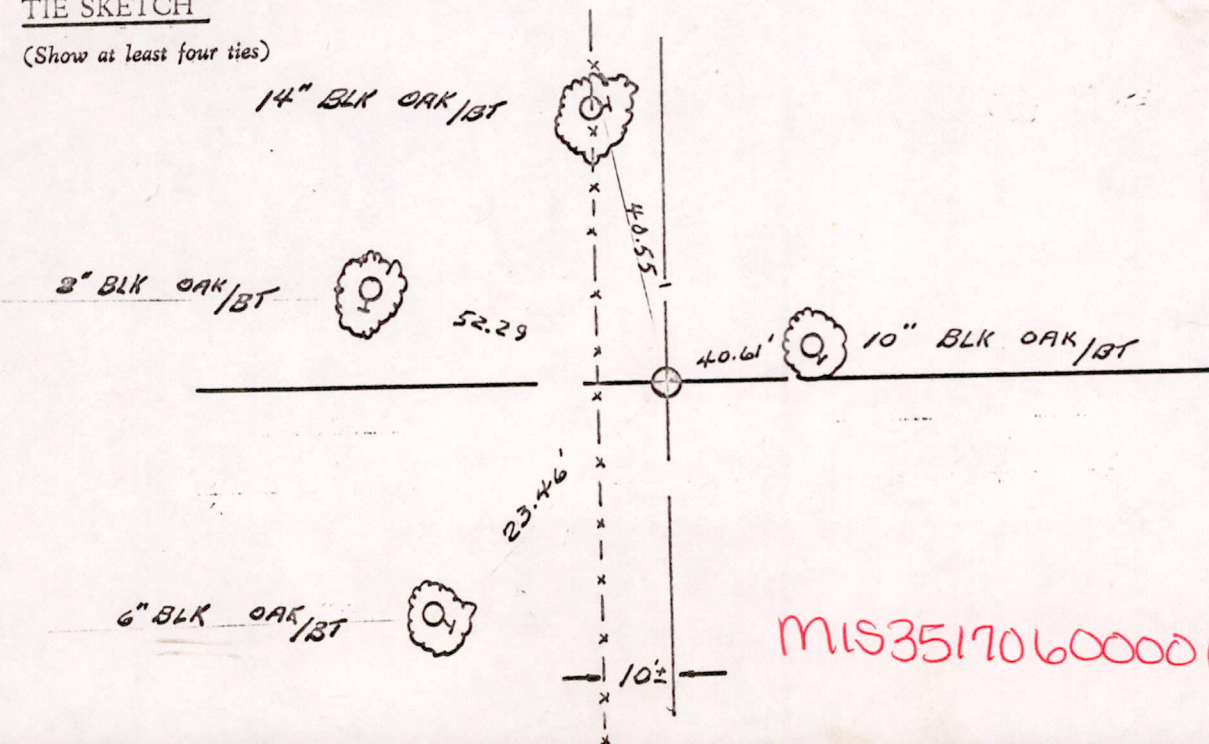 TIE SKETCH
(Show at least four ties)
14" BLK OAK/BT
40.55
8" BLK OAK/BT
52.29
40.61'
10" BLK OAK/BT
23.46'
6" BLK OAK/BT
10'±